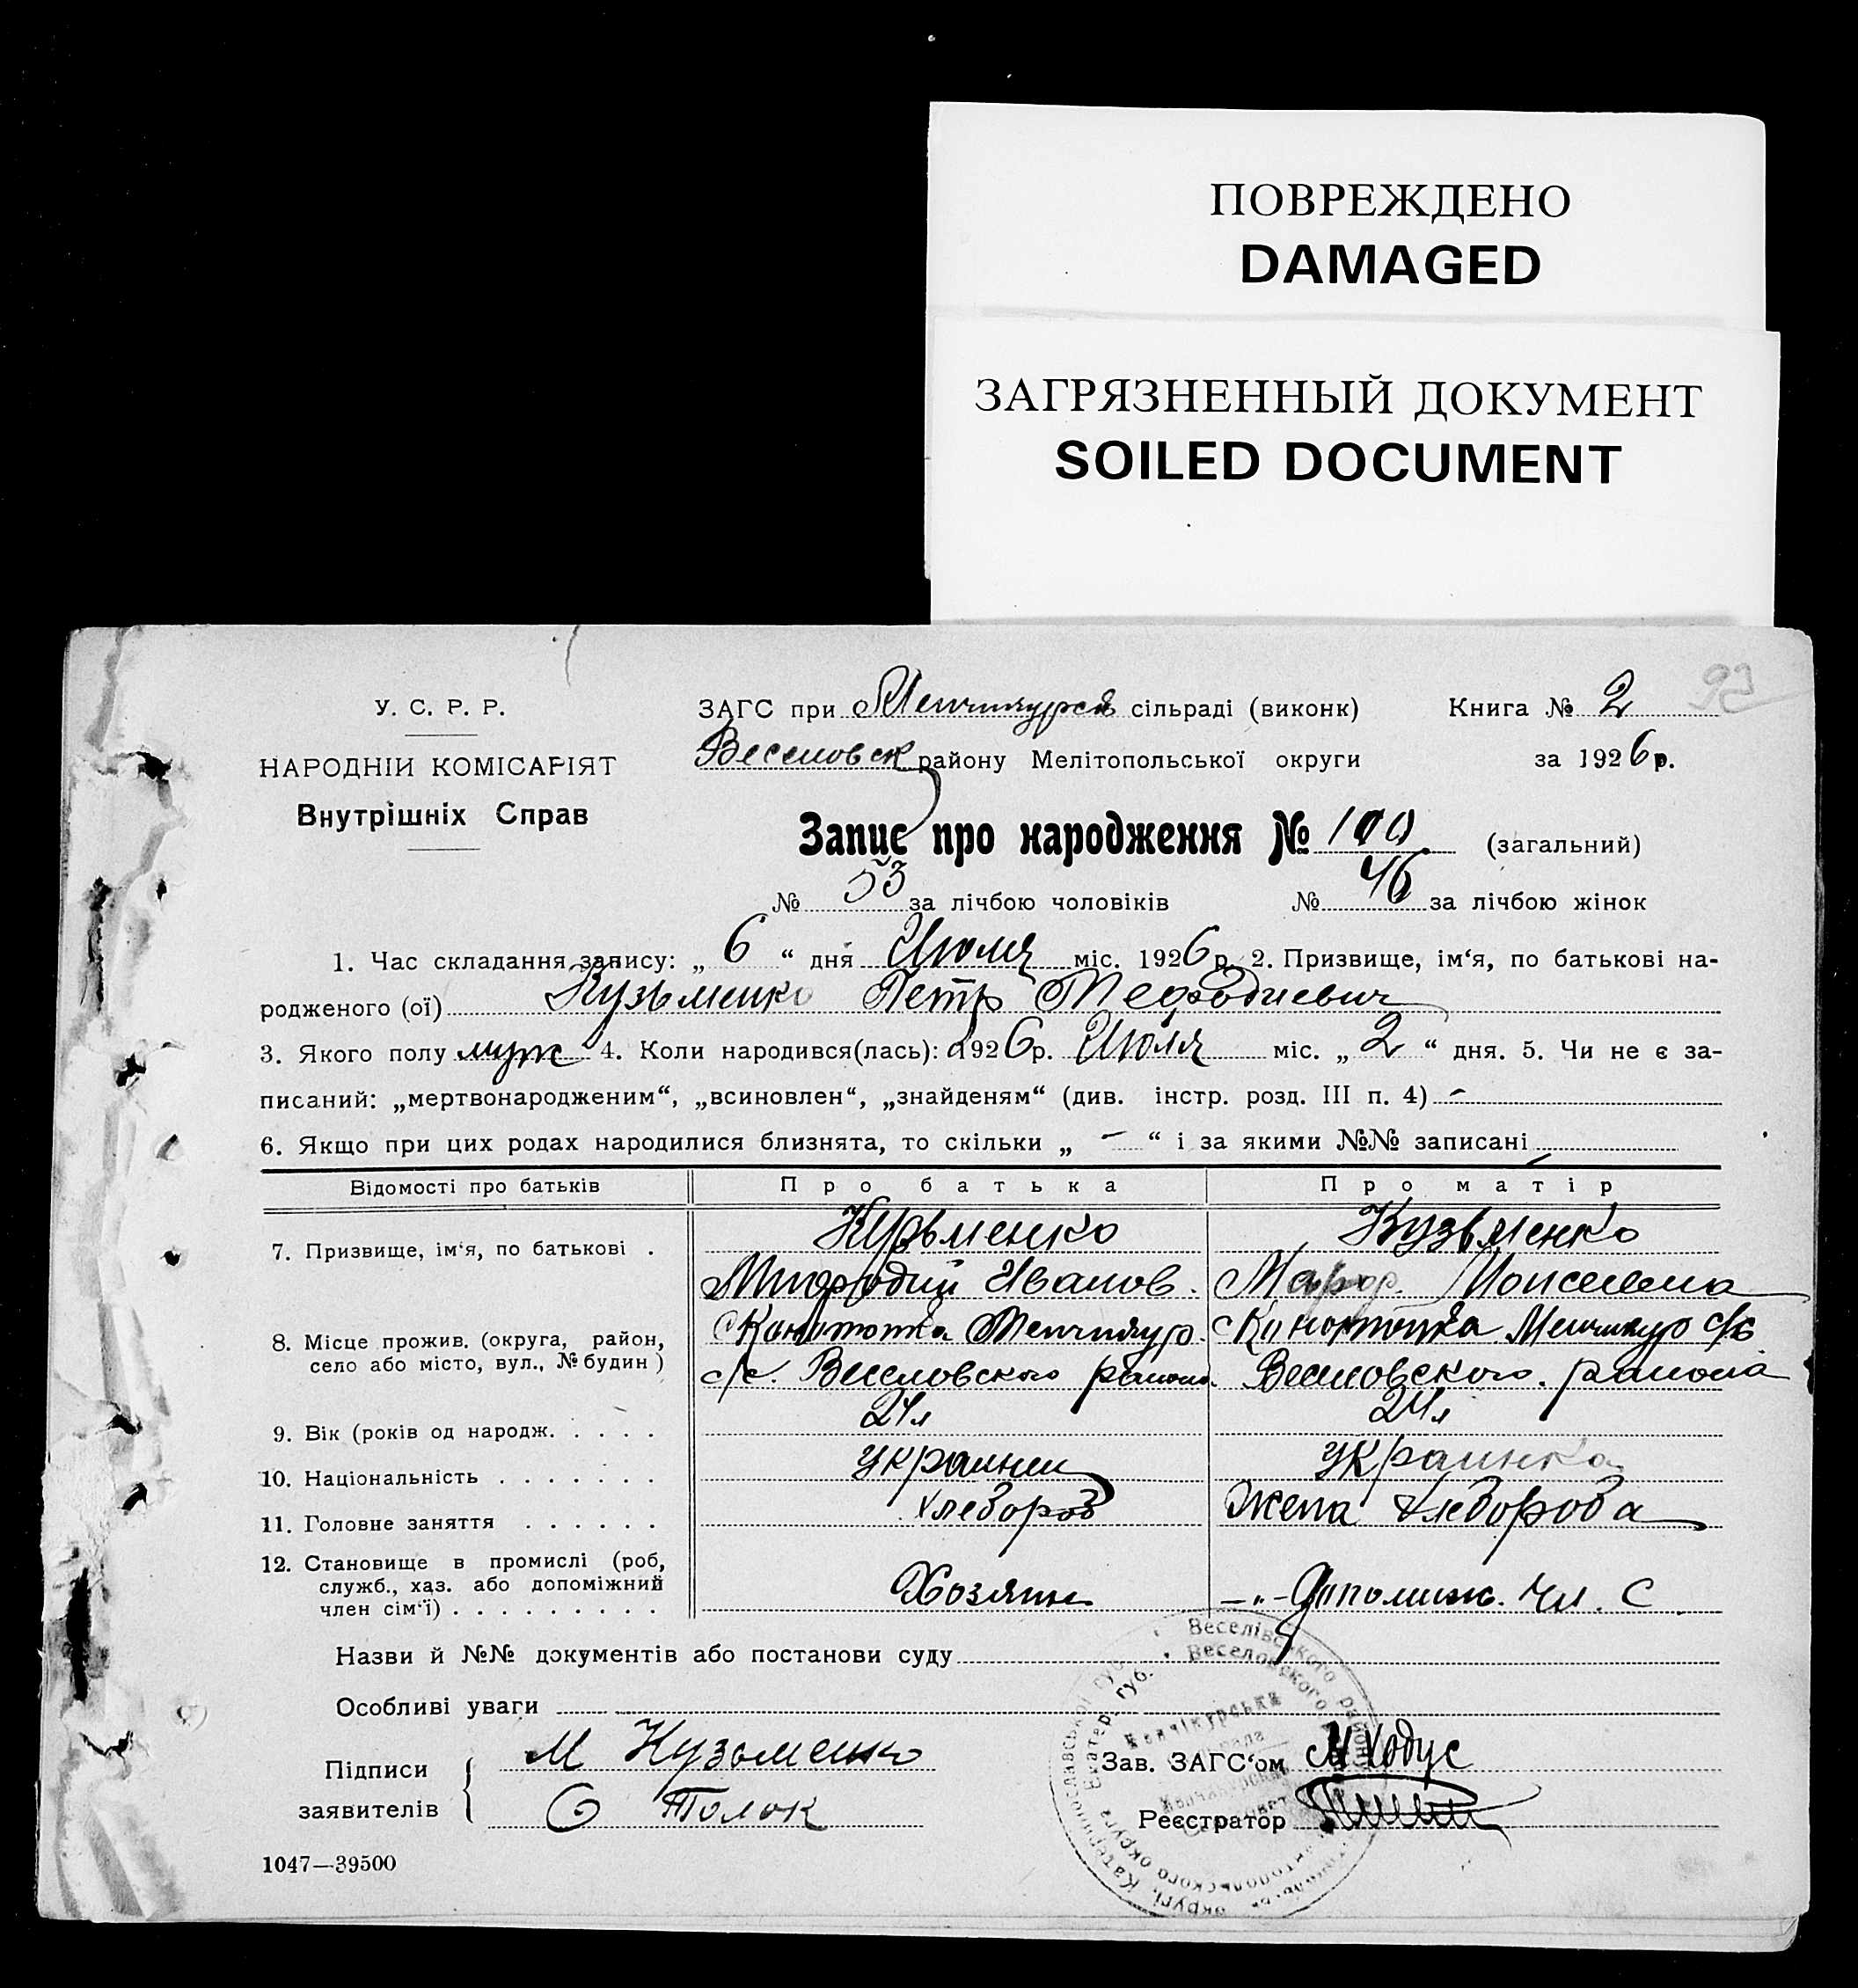 ПОВРЕЖДЕНО
DAMAGED
ЗАГРЯЗНЕННЫЙ ДОКУМЕНТ
SOILED DOCUMENT
93
У. С. Р. Р.
ЗАГС при сільраді (виконк) Книга № 2
НАРОДНІИ КОМІСАРІЯТ
Веселовск району Мелітопольської округи за 1926 р.
Внутрішніх Справ
Запис про народження № 100 (загальний)
№ 53 за лічбою чоловіків № 46 за лічбою жінок
1. Час складання запису: „ 6 “ дня Июля міс. 1926 р. 2. Призвище, ім‘я, по батькові на-
родженого (ої) Кузьменко Петр Мефодиевич
3. Якого полу муж 4. Коли народився(лась): 1926 р. Июля міс. „ 2 “ дня. 5. Чи не є за-
писаний: „мертвонародженим“, „всиновлен“, „знайденям“ (див. інстр. розд. III п. 4) -
6. Якщо при цих родах народилися близнята, то скільки „ - “ і за якими №№ записані -
Відомості про батьків Про батька Про матір
7. Призвище, ім‘я, по батькові . Кузьменко Кузьменко
Мифодий Иванов. Моисеевна
8. Місце прожив. (округа, район,
село або місто, вул., № будин )
с/с. Веселовского района. Веселовского. района
9. Вік (років од народж. . . . . 24л 24л
10. Національність . . . . . . . украинец украинка
11. Головне заняття . . . . . . хлебороб Жена хлебороба
12. Становище в промислі (роб,
служб., хаз. або допоміжний
член сім‘ї) . . . . . . . . . Хозяин -„- Допомиж. чл. С
Назви й №№ документів або постанови суду
Особливі уваги
Підписи
заявителів
М Кузоменко
О Толок
Зав. ЗАГС‘ом Ходус
Реєстратор
Веселівського району
Веселовского
1047—39500